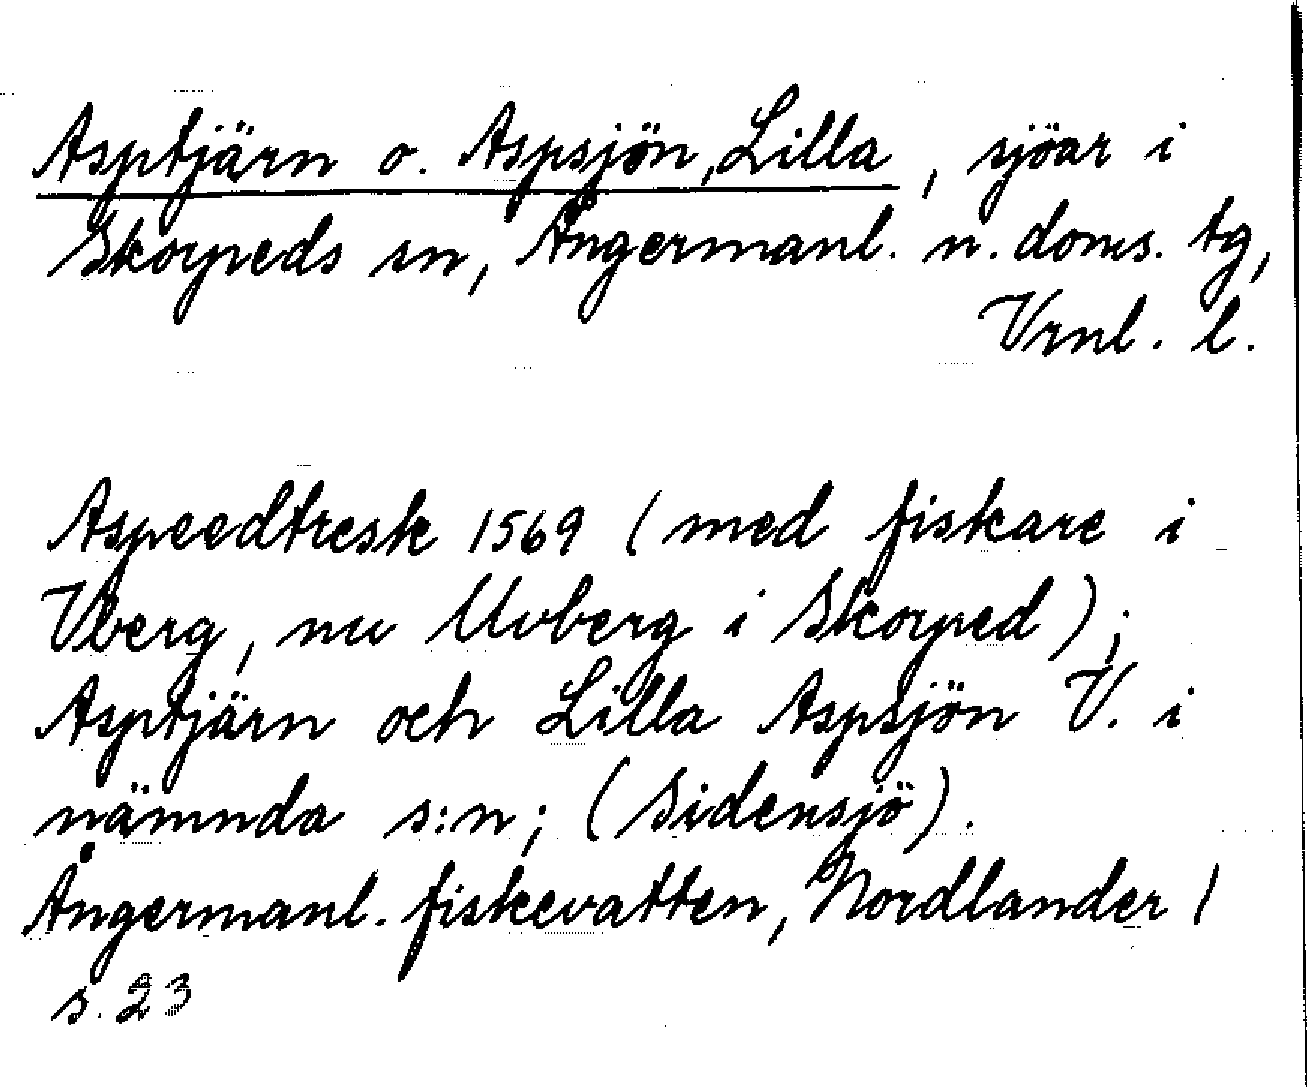 Asptjärn o. Aspsjön, Lilla, sjöar i
Skorpeds sn, Ångermanl. n. doms. tg,
Vrnl. l.
Aspeedtresk 1569 (med fiskare i
Vberg, nu Uvberg i Skorped);
Asptjärn och Lilla Aspsjön V. i
nämnda s:n; (Sidensjö).
Ångermanl. fiskevatten, Nordlander 1
s. 23